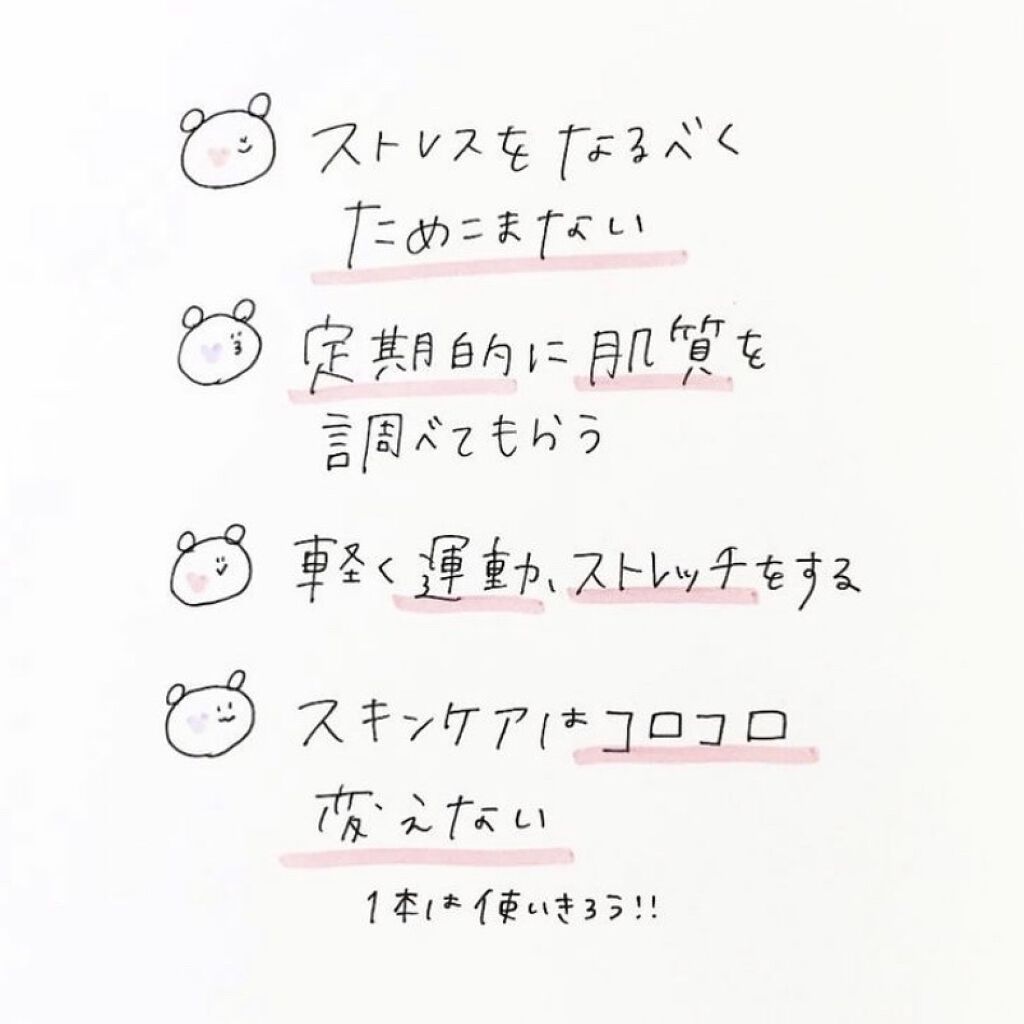 ストレスをなるべく
ためこまない
定期的に肌質を
調べてもらう
軽く運動、ストレッチをする
スキンケアはコロコロ
変えない
1本は使いきろう!!